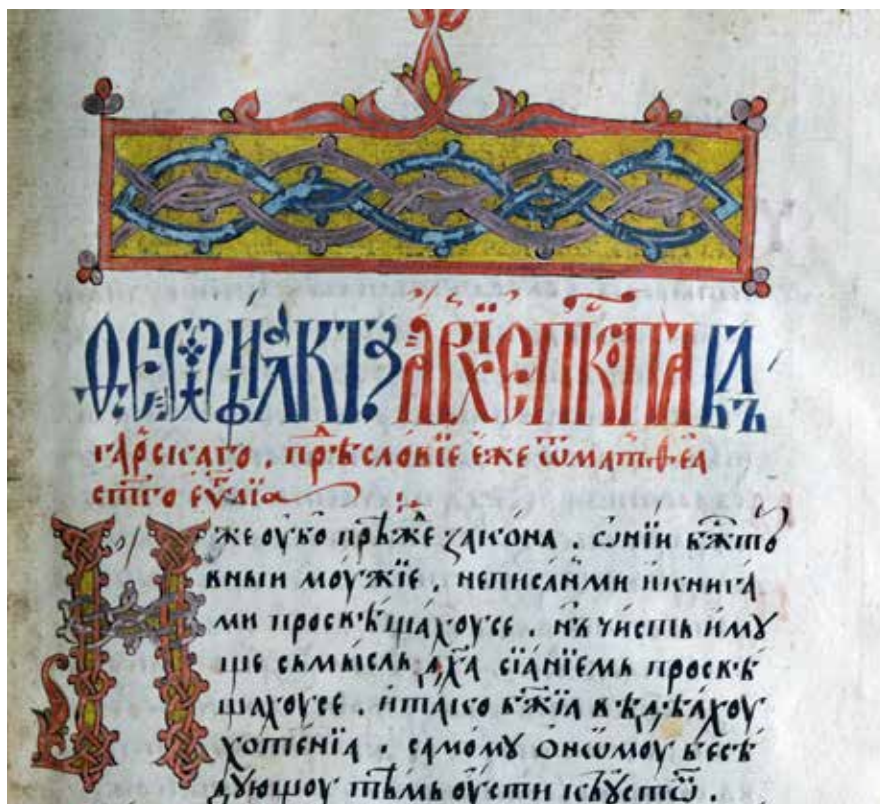 Ѳеѡфилакта архїепⷭ҇копа бл
гарскаго . прѣⷣсловїе еже ѿ матѳеа
ст҃го еѵⷢ҇лїа
Иже оубо прѣжⷣе закона . ѡнїи бж҃тⷭ҇о
вныи моужїе . не писанми и книга
ми просвѣщахоусе . нь чисть иму
ще сьмысль дх҃а сїанїемь просвѣ
щахоусе . и тако бж҃їа вѣдѣахоу
хотенїа . самому ономоу бесѣ
дующоу тѣмь оусти кь оустѡⷨ .